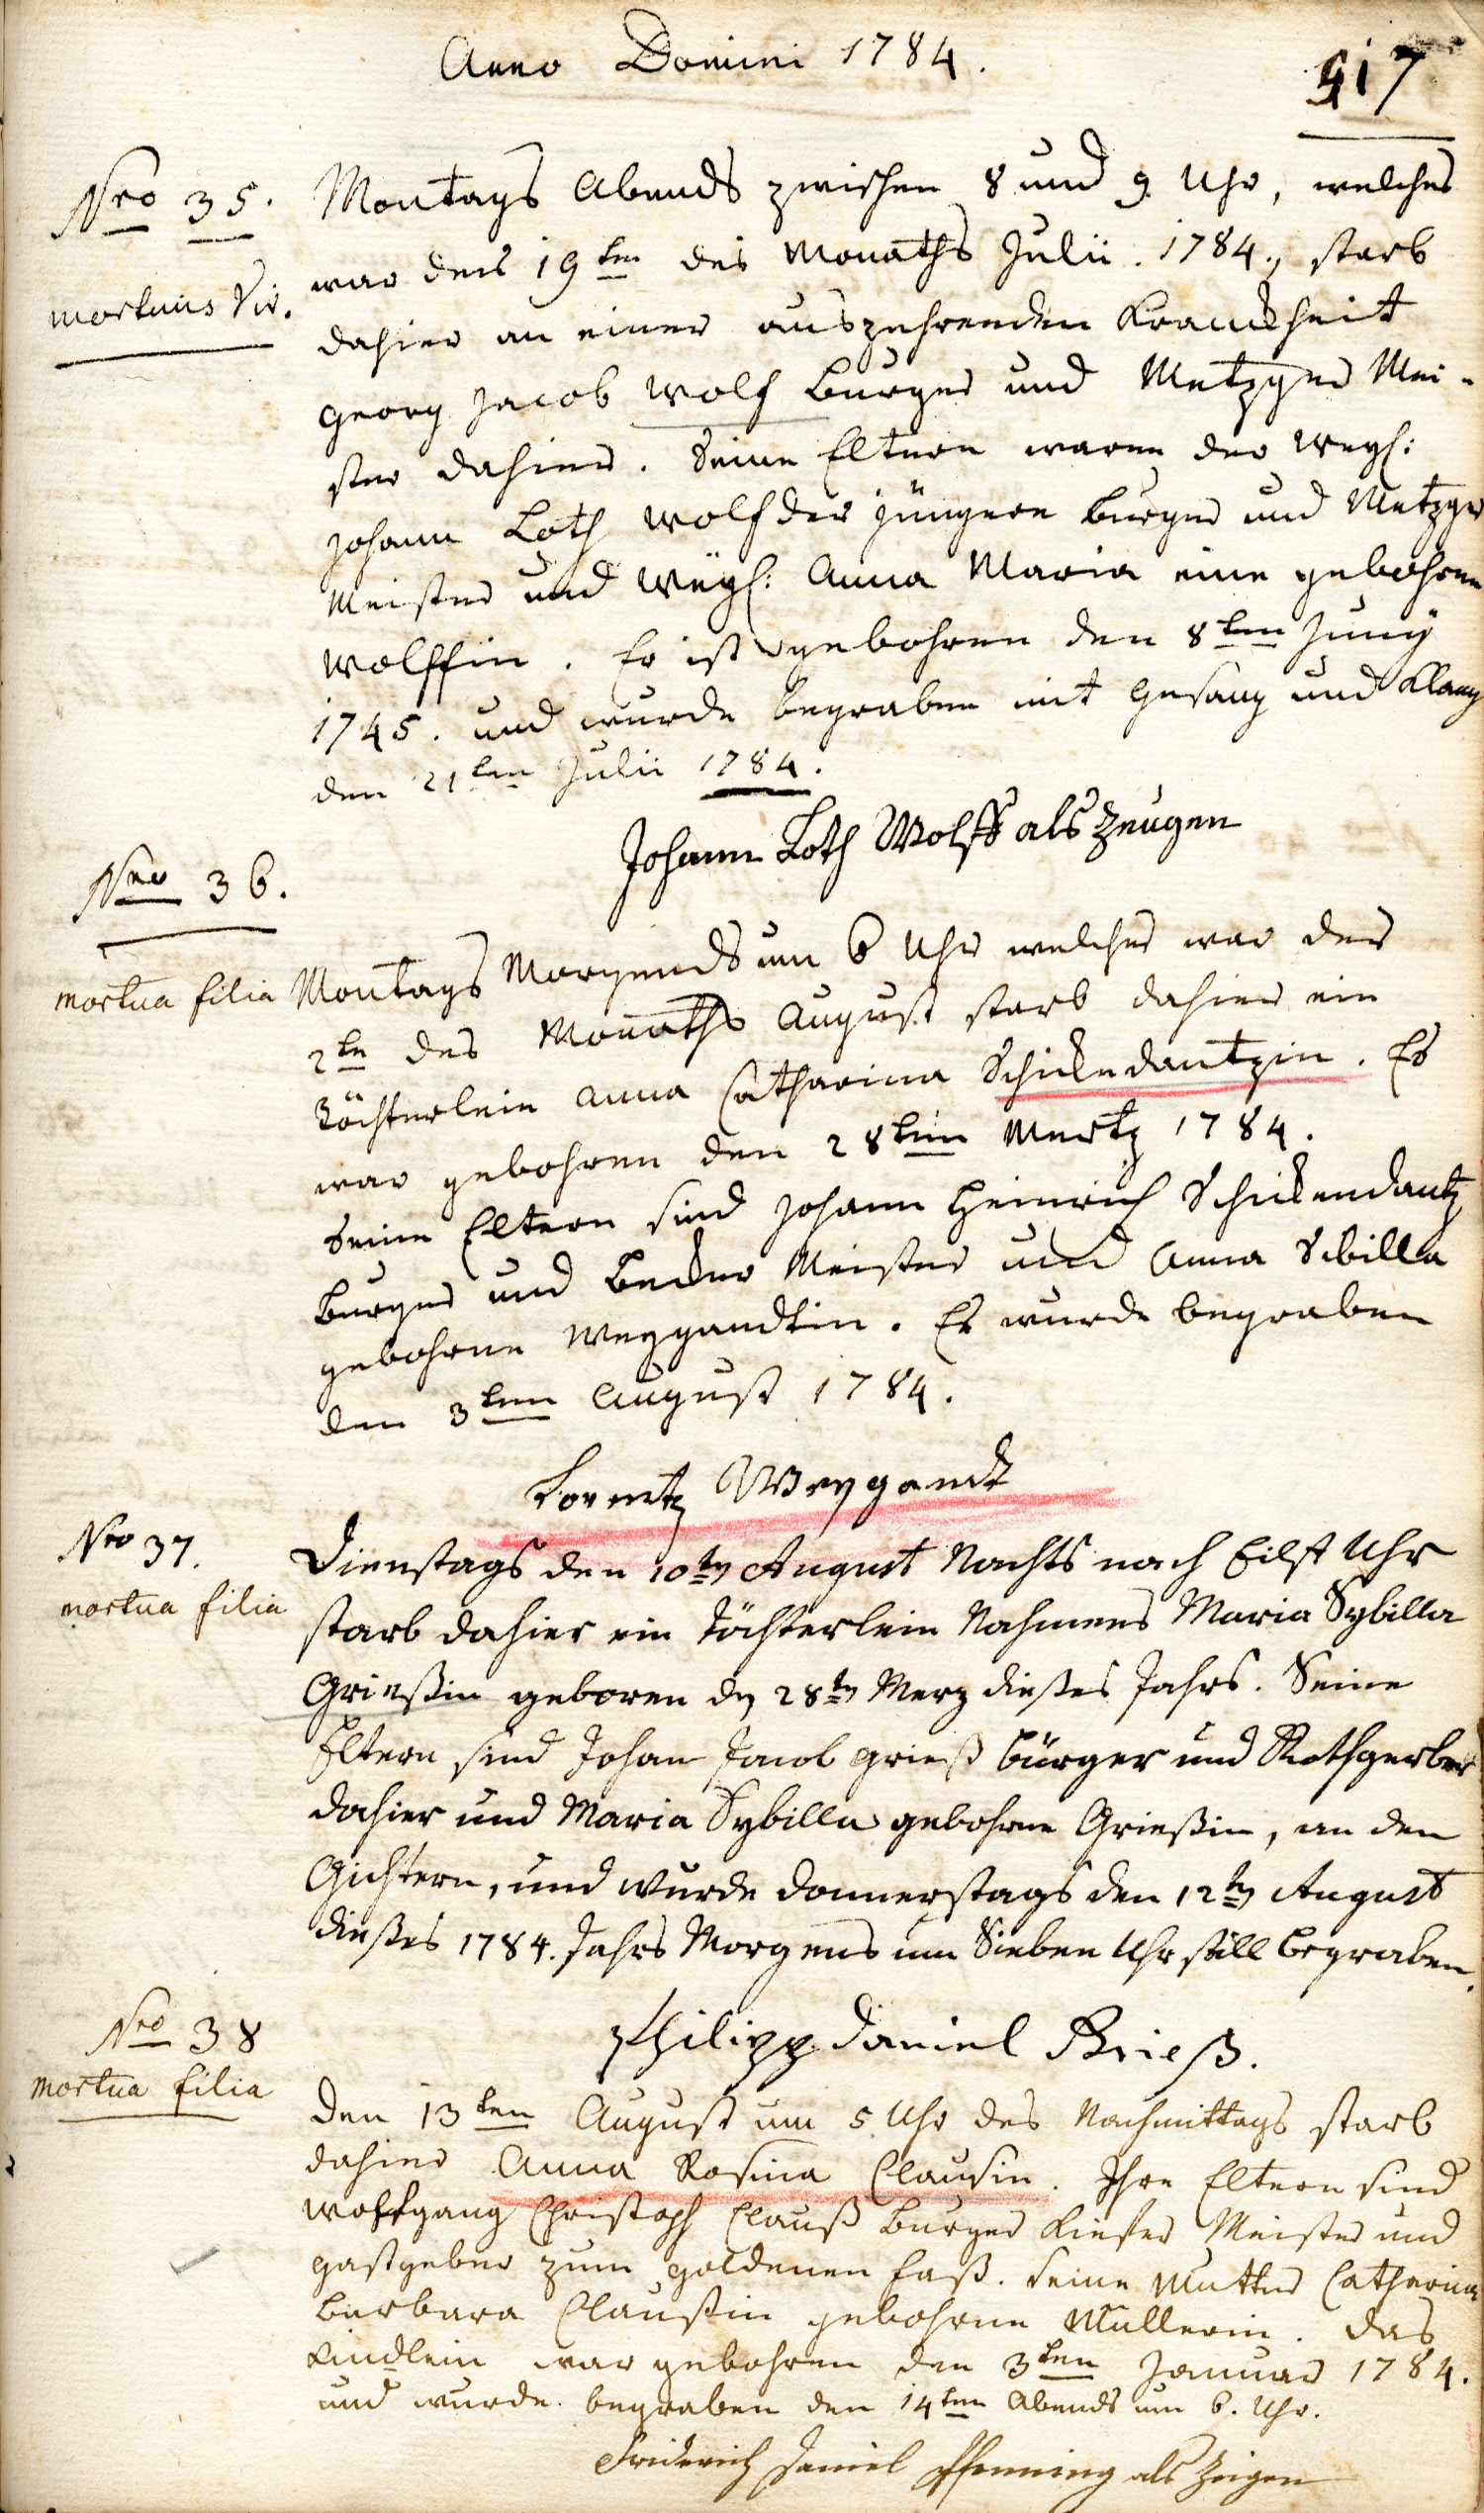 Anno Domini 1784.
417
Nro 35.
mortuus Vir.
Montags Abends zwischen 8 und 9 Uhr, welcher
war der 19ten des Monaths Julii. 1784., starb
dahier an einer auszehrenden Kranckheit
Georg Jacob Wolf Burger und Metzger Mei-
ster dahier. Seine Eltern waren der Weyl:
Johann Loth Wolf der jüngere Burger und Metzger
Meister und Weyl: Anna Maria eine gebohrne
Wolffin. Er ist gebohren den 8ten Juny
1745. und wurde begraben mit Gesang und Klang
den 21ten Julii 1784.
Johann Loth Wolff als Zeugen
Nro 36.
mortua filia
Montags Morgends um 6 Uhr welcher war der
2te des Monaths August starb dahier ein
Töchterlein Anna Catharina Schickedantzin. Es
war gebohren den 28ten Mertz 1784.
Seine Eltern sind Johann Heinrich Schickendantz
Burger und Becker Meister und Anna Sibilla
gebohrne Weygandtin. Es wurde begraben
den 3ten August 1784.
Lorentz Weygandt
Nro 37.
mortua filia
Dienstags den 10ten August Nachts nach Eilf Uhr
starb dahier ein Töchterlein Nahmens Maria Sybilla
Grießin geboren dn 28tn Merz dießes Jahrs. Seine
Eltern sind Johan Jacob Grieß Bürger und Rothgerber
dahier und Maria Sybilla gebohrne Grießin, an den
Gichtern, und wurde Donnerstags den 12tn August
dießes 1784. Jahrs Morgens um Sieben Uhr still begraben.
Philipp Daniel Grieß.
Nro 38
mortua filia
Den 13ten August um 5 Uhr des Nachmittags starb
dahier Anna Rosina Clausin. Ihre Eltern sind
Wolfgang Christoph Clauß Burger Kiefer Meister und
Gastgeber zum goldenen Faß. Seine Mutter Catharina
Barbara Claußin gebohrne Müllerin. Das
Kindlein war gebohren den 3ten Januar 1784.
und wurde begraben den 14ten Abends um 6. Uhr.
Friderich Daniel Pfenning als Zeigen